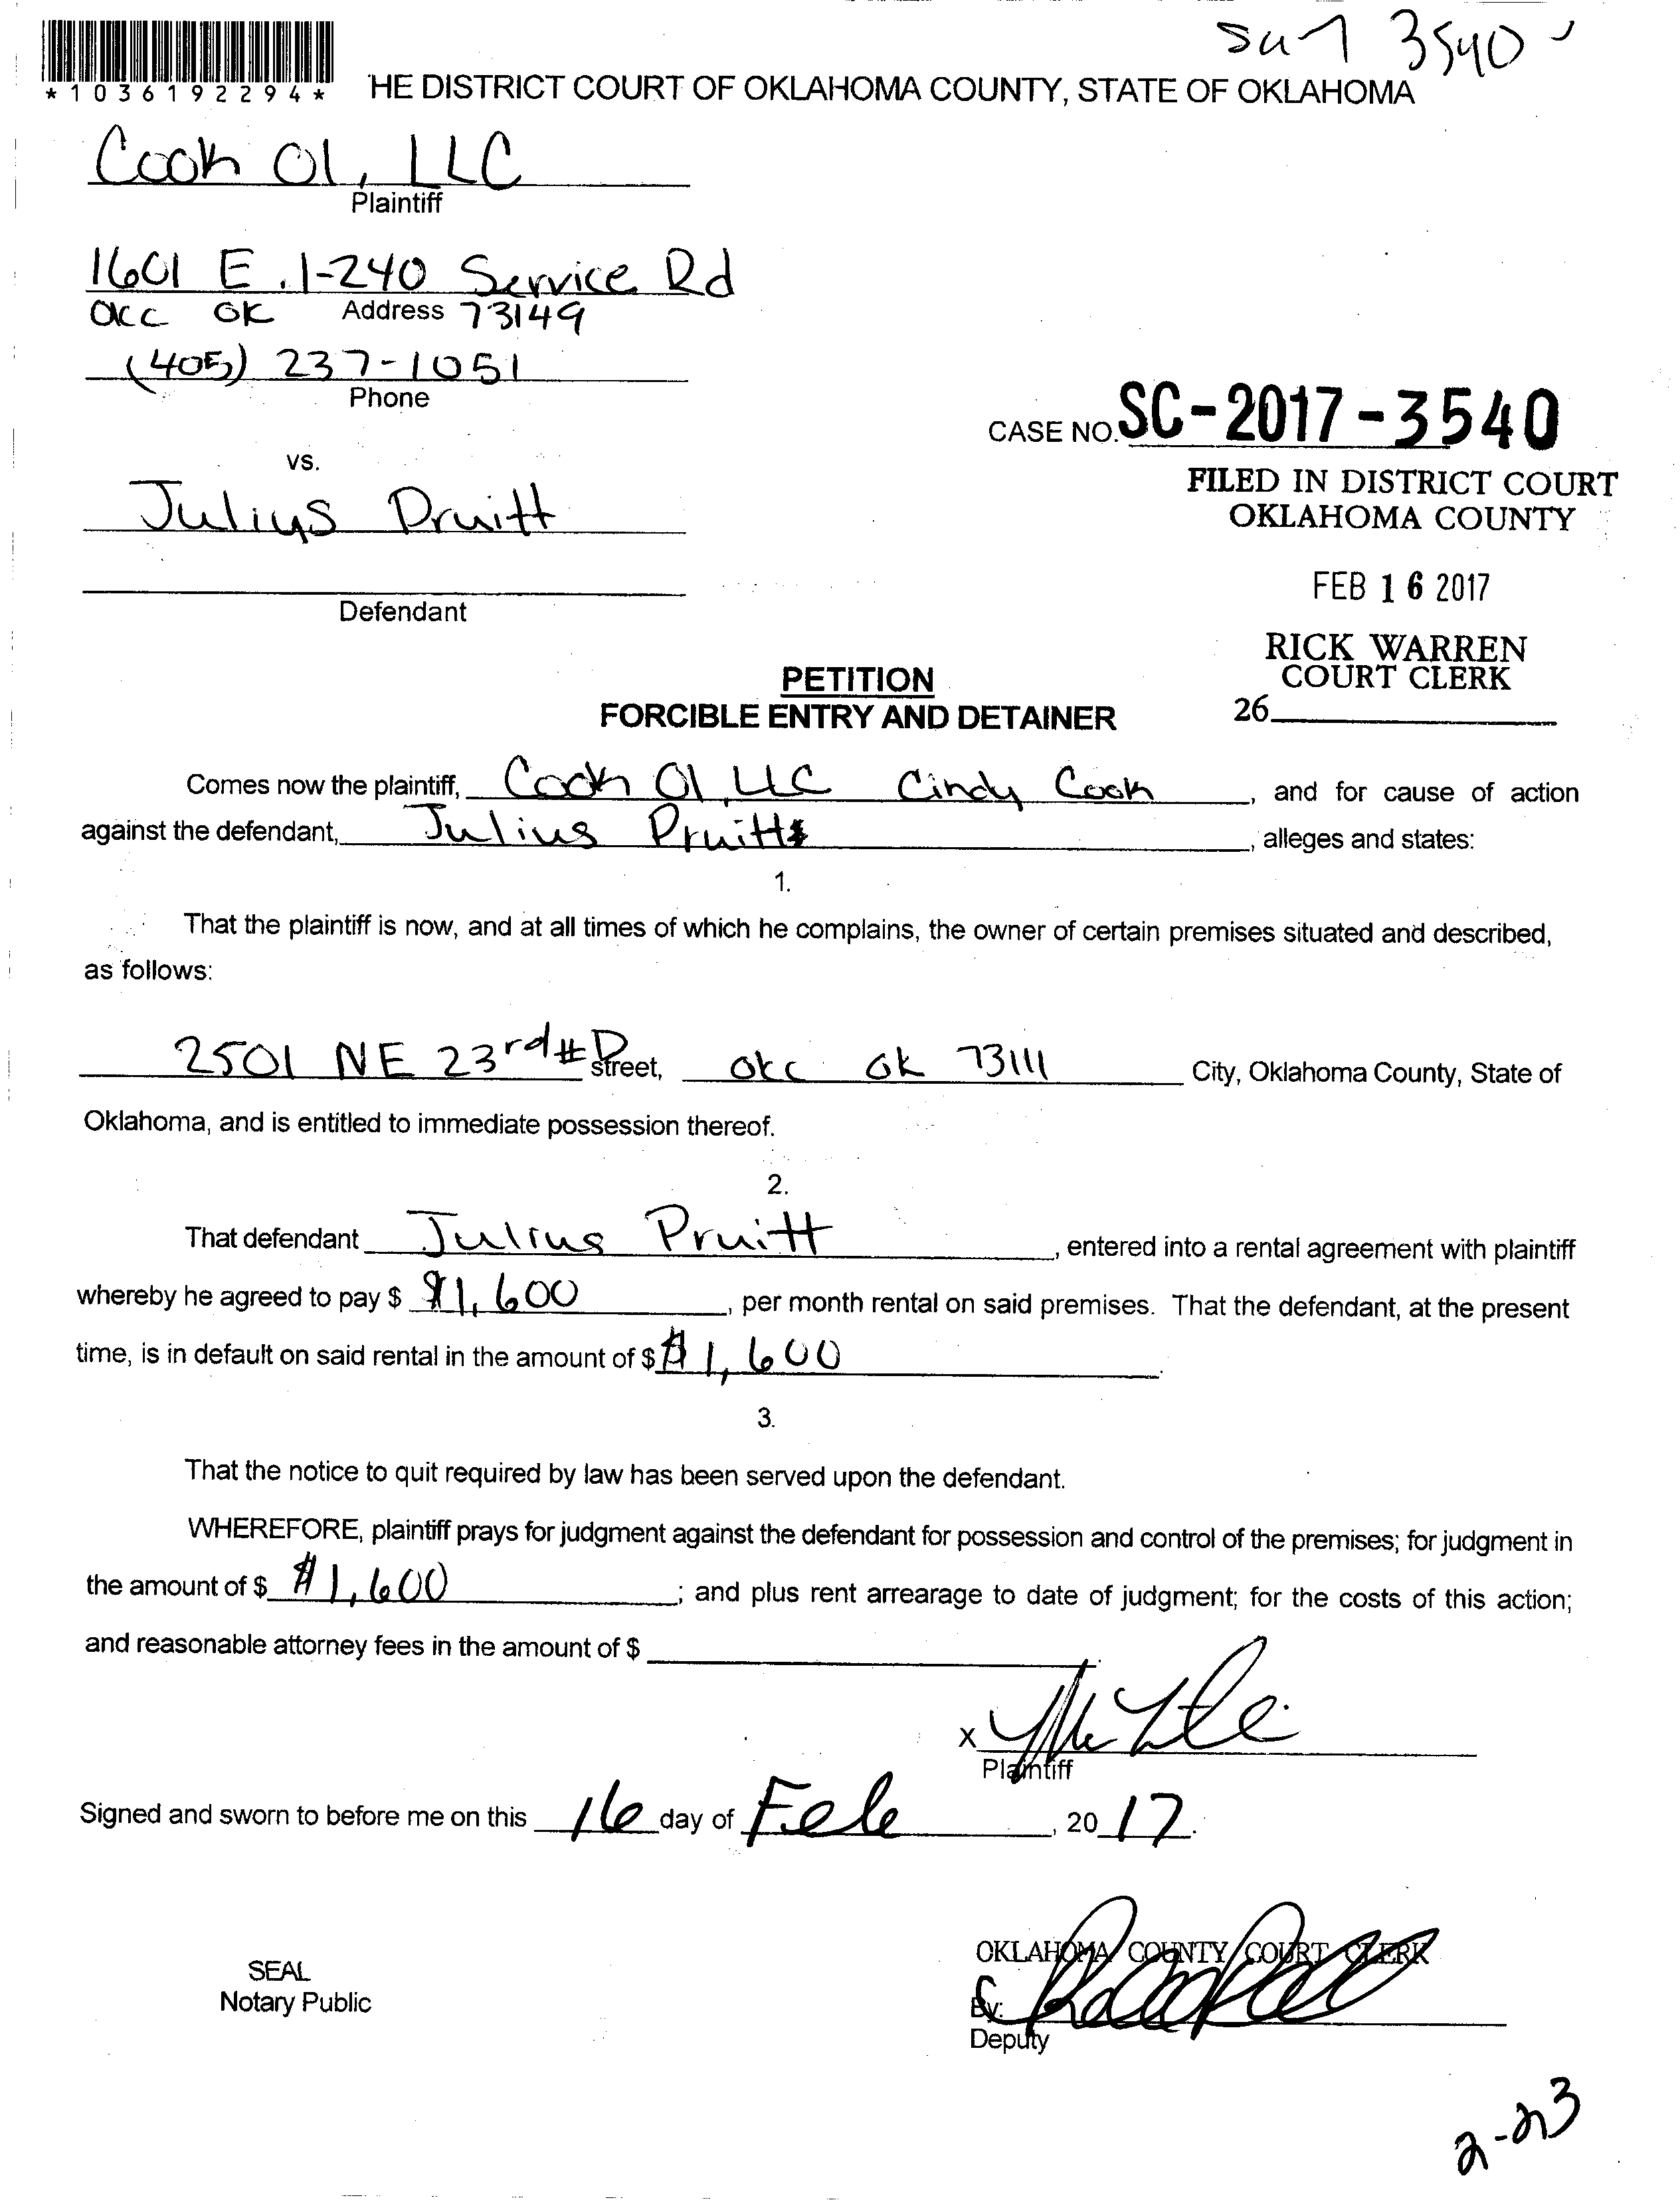 3540
*1036192294*
HE DISTRICT COURT OF OKLAHOMA COUNTY, STATE OF OKLAHOMA
Cook 01, LLC
Plaintiff
1601 E. I-240 Service Rd
OKC OK Address 73149
(405) 237-1051
Phone
CASE NO. SC-2017-3540
vs.
FILED IN DISTRICT COURT
OKLAHOMA COUNTY
Julius Pruitt
FEB 16 2017
Defendant
RICK WARREN
COURT CLERK
26
PETITION
FORCIBLE ENTRY AND DETAINER
Comes now the plaintiff, Cook 01, LLC Cindy Cook, and for cause of action
against the defendant, Julius Pruitt, alleges and states:
1.
That the plaintiff is now, and at all times of which he complains, the owner of certain premises situated and described,
as follows:
2501 NE 23rd #D street, OKC OK 73111 City, Oklahoma County, State of
Oklahoma, and is entitled to immediate possession thereof.
2.
That defendant Julius Pruitt, entered into a rental agreement with plaintiff
whereby he agreed to pay $ $1,600, per month rental on said premises. That the defendant, at the present
time, is in default on said rental in the amount of $ $1,600.
3.
That the notice to quit required by law has been served upon the defendant.
WHEREFORE, plaintiff prays for judgment against the defendant for possession and control of the premises; for judgment in
the amount of $ $1,600; and plus rent arrearage to date of judgment; for the costs of this action;
and reasonable attorney fees in the amount of $
x
Plaintiff
Signed and sworn to before me on this 16 day of Feb, 2017.
OKLAHOMA COUNTY COURT CLERK
SEAL
Notary Public
By:
Deputy
2-23